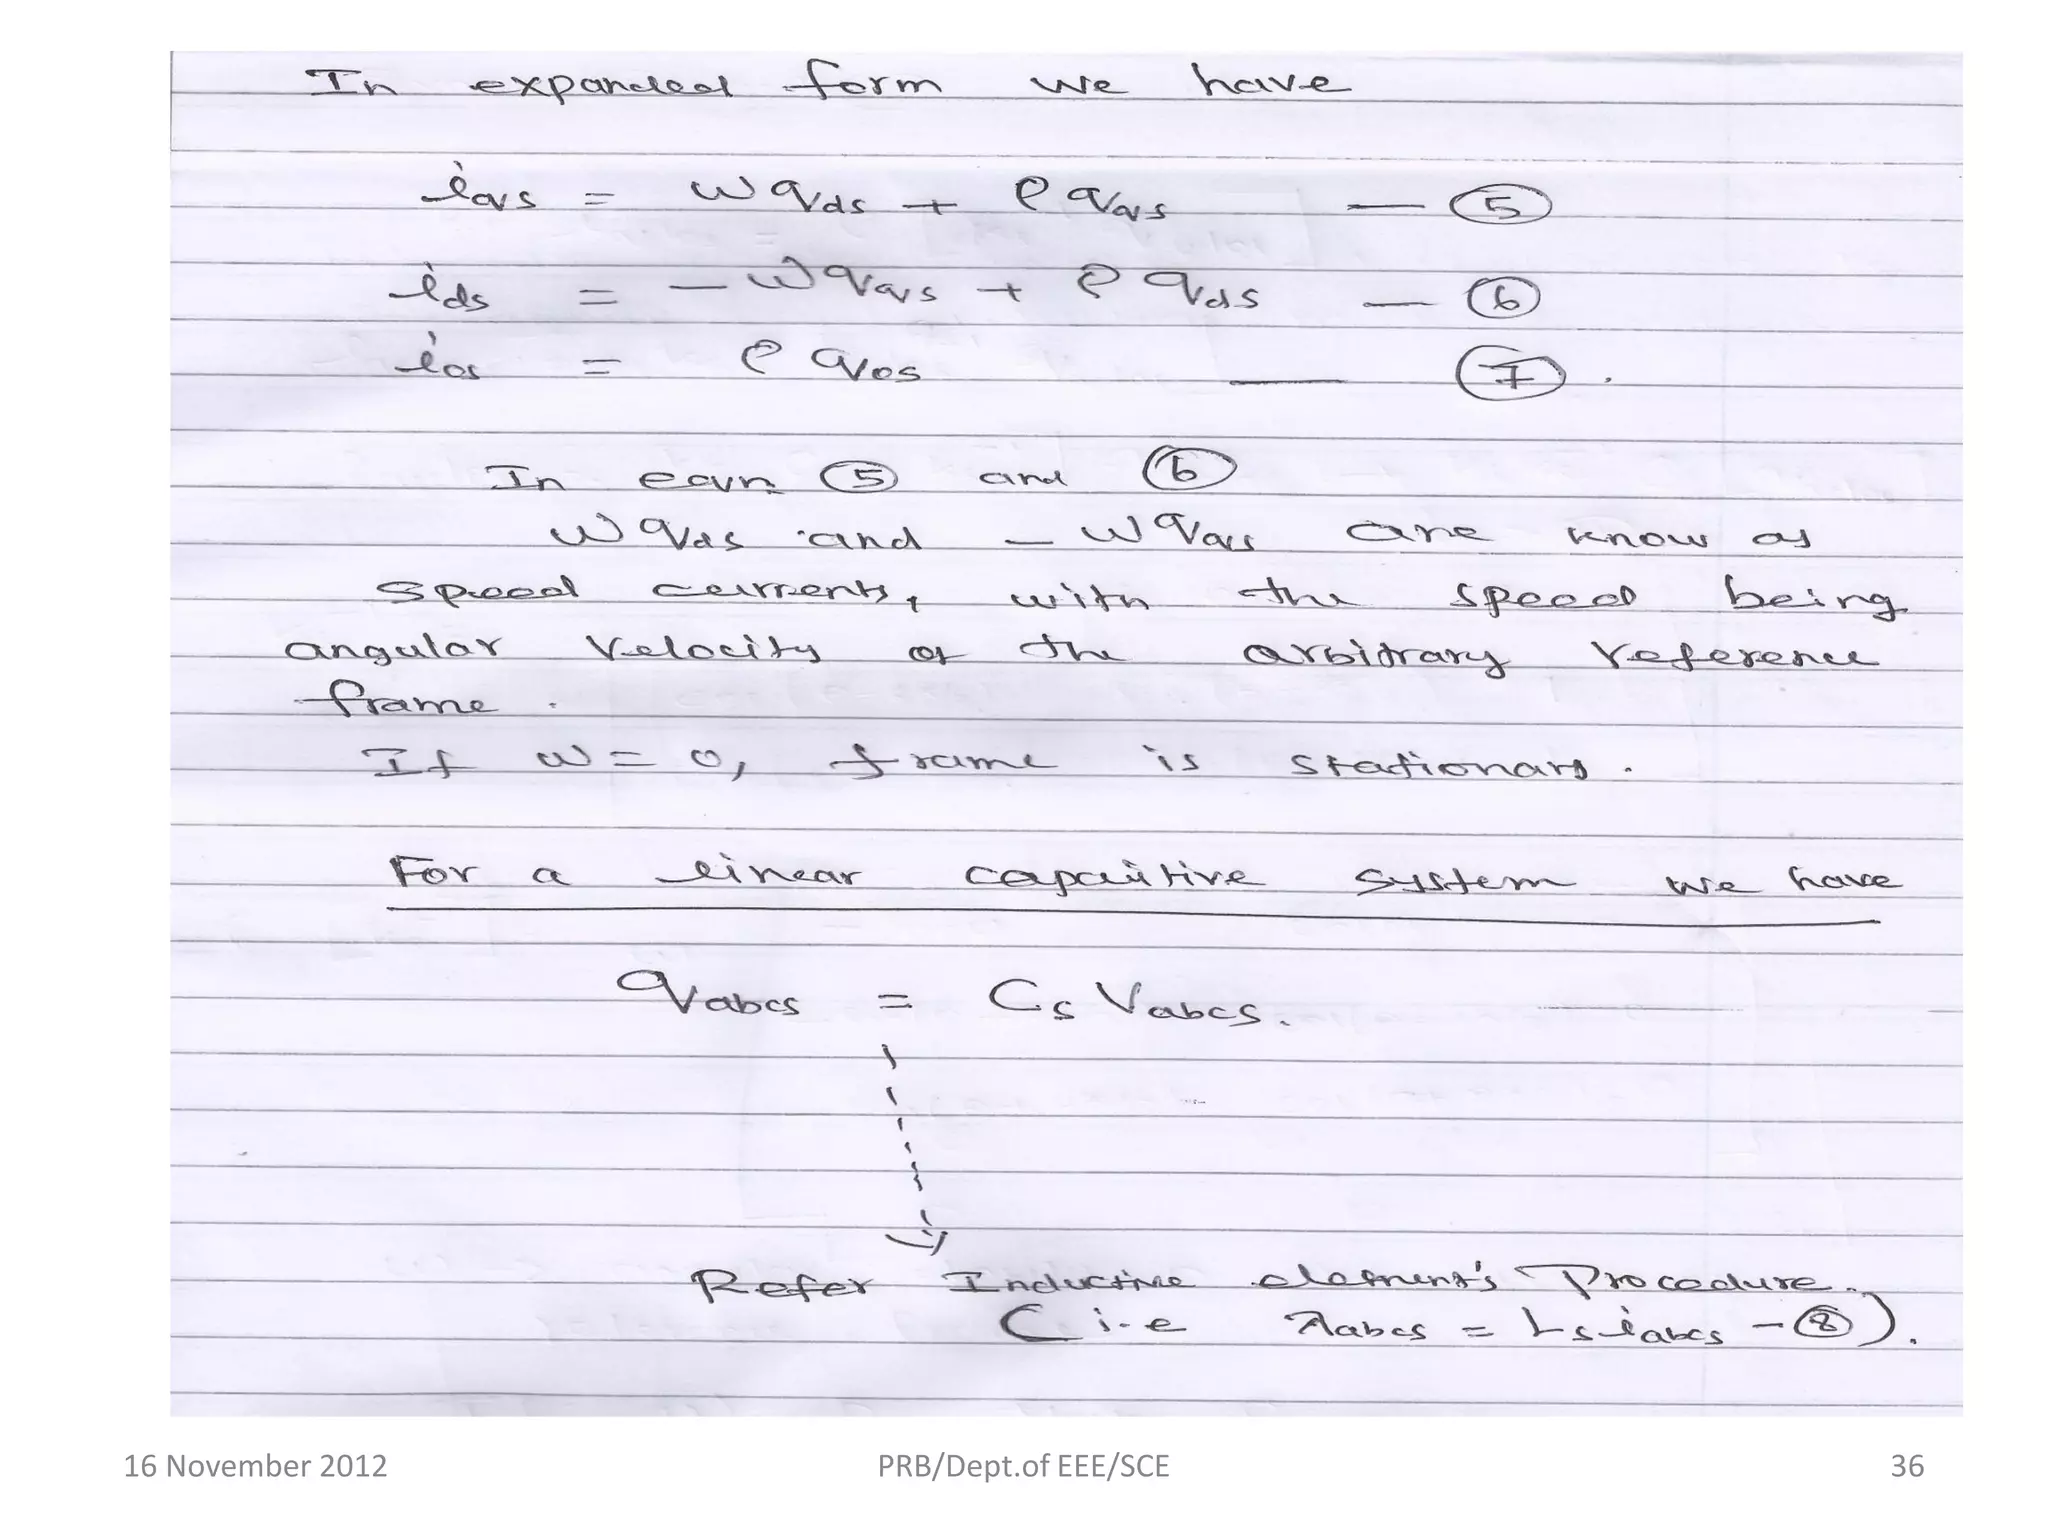 In expanded form we have
iqs = ω qds + ρ qqs — ⑤
ids = - ω qqs + ρ qds — ⑥
ios = ρ qos — ⑦.
In eqn. ⑤ and ⑥
ω qds and - ω qqs are know as
speed currents, with the speed being
angular velocity of the arbitrary reference
frame.
If ω = 0, frame is stationary.
For a linear capacitive system we have
qabcs = Cs Vabcs.
Refer Inductive element's Procedure.
(i.e λabcs = Ls iabcs - ⑧).
16 November 2012 PRB/Dept.of EEE/SCE 36